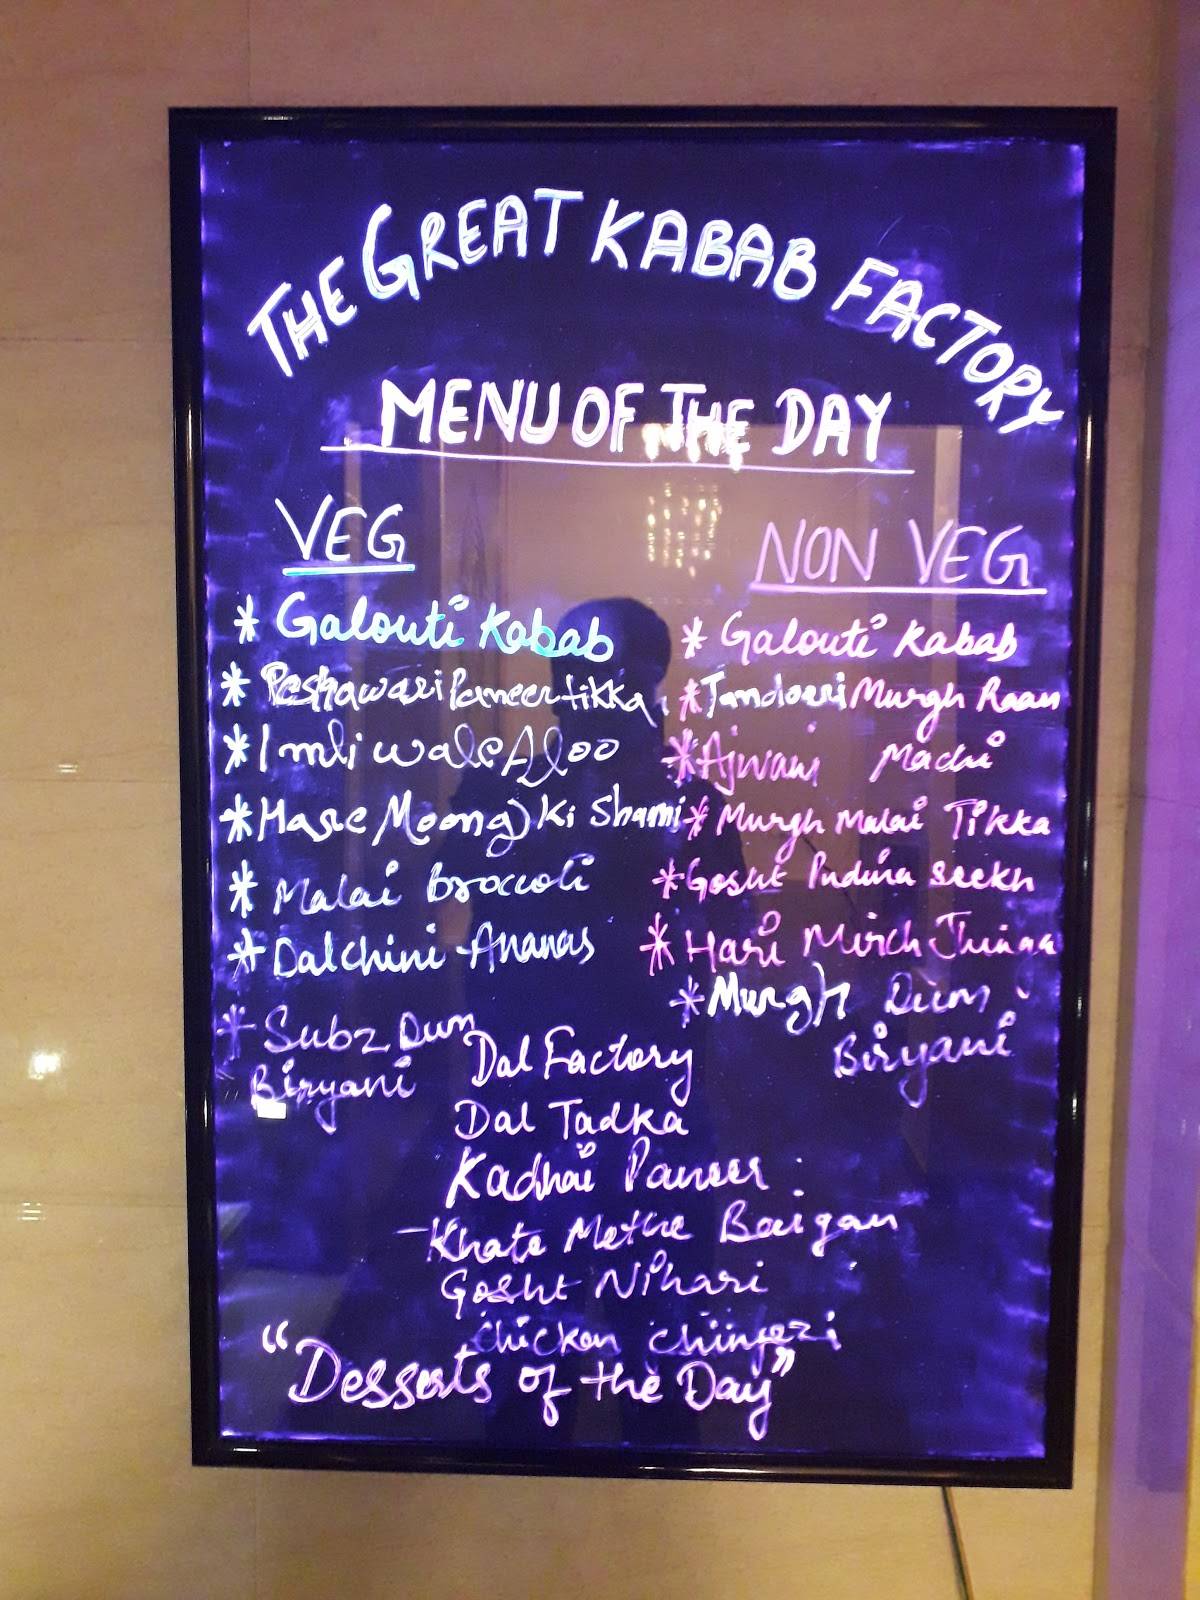 THE GREAT KABAB FACTORY
MENU OF THE DAY
VEG
* Galouti Kabab
* Peshawari Paneer tikka
* Imli wale Aloo
* Hare Moong Ki Shami
* Malai Broccoli
* Dalchini Ananas
* Subz Dum
Biryani
NON VEG
* Galouti Kabab
* Tandoori Murgh Raan
* Ajwani Machi
* Murgh Malai Tikka
* Gosht Pudina Seekh
* Hari Mirch Jhinga
* Murgh Dum
Biryani
Dal Factory
Dal Tadka
Kadhai Paneer
Khate Methe Baigan
Gosht Nihari
Chicken Chingezi
"Desserts of the Day"